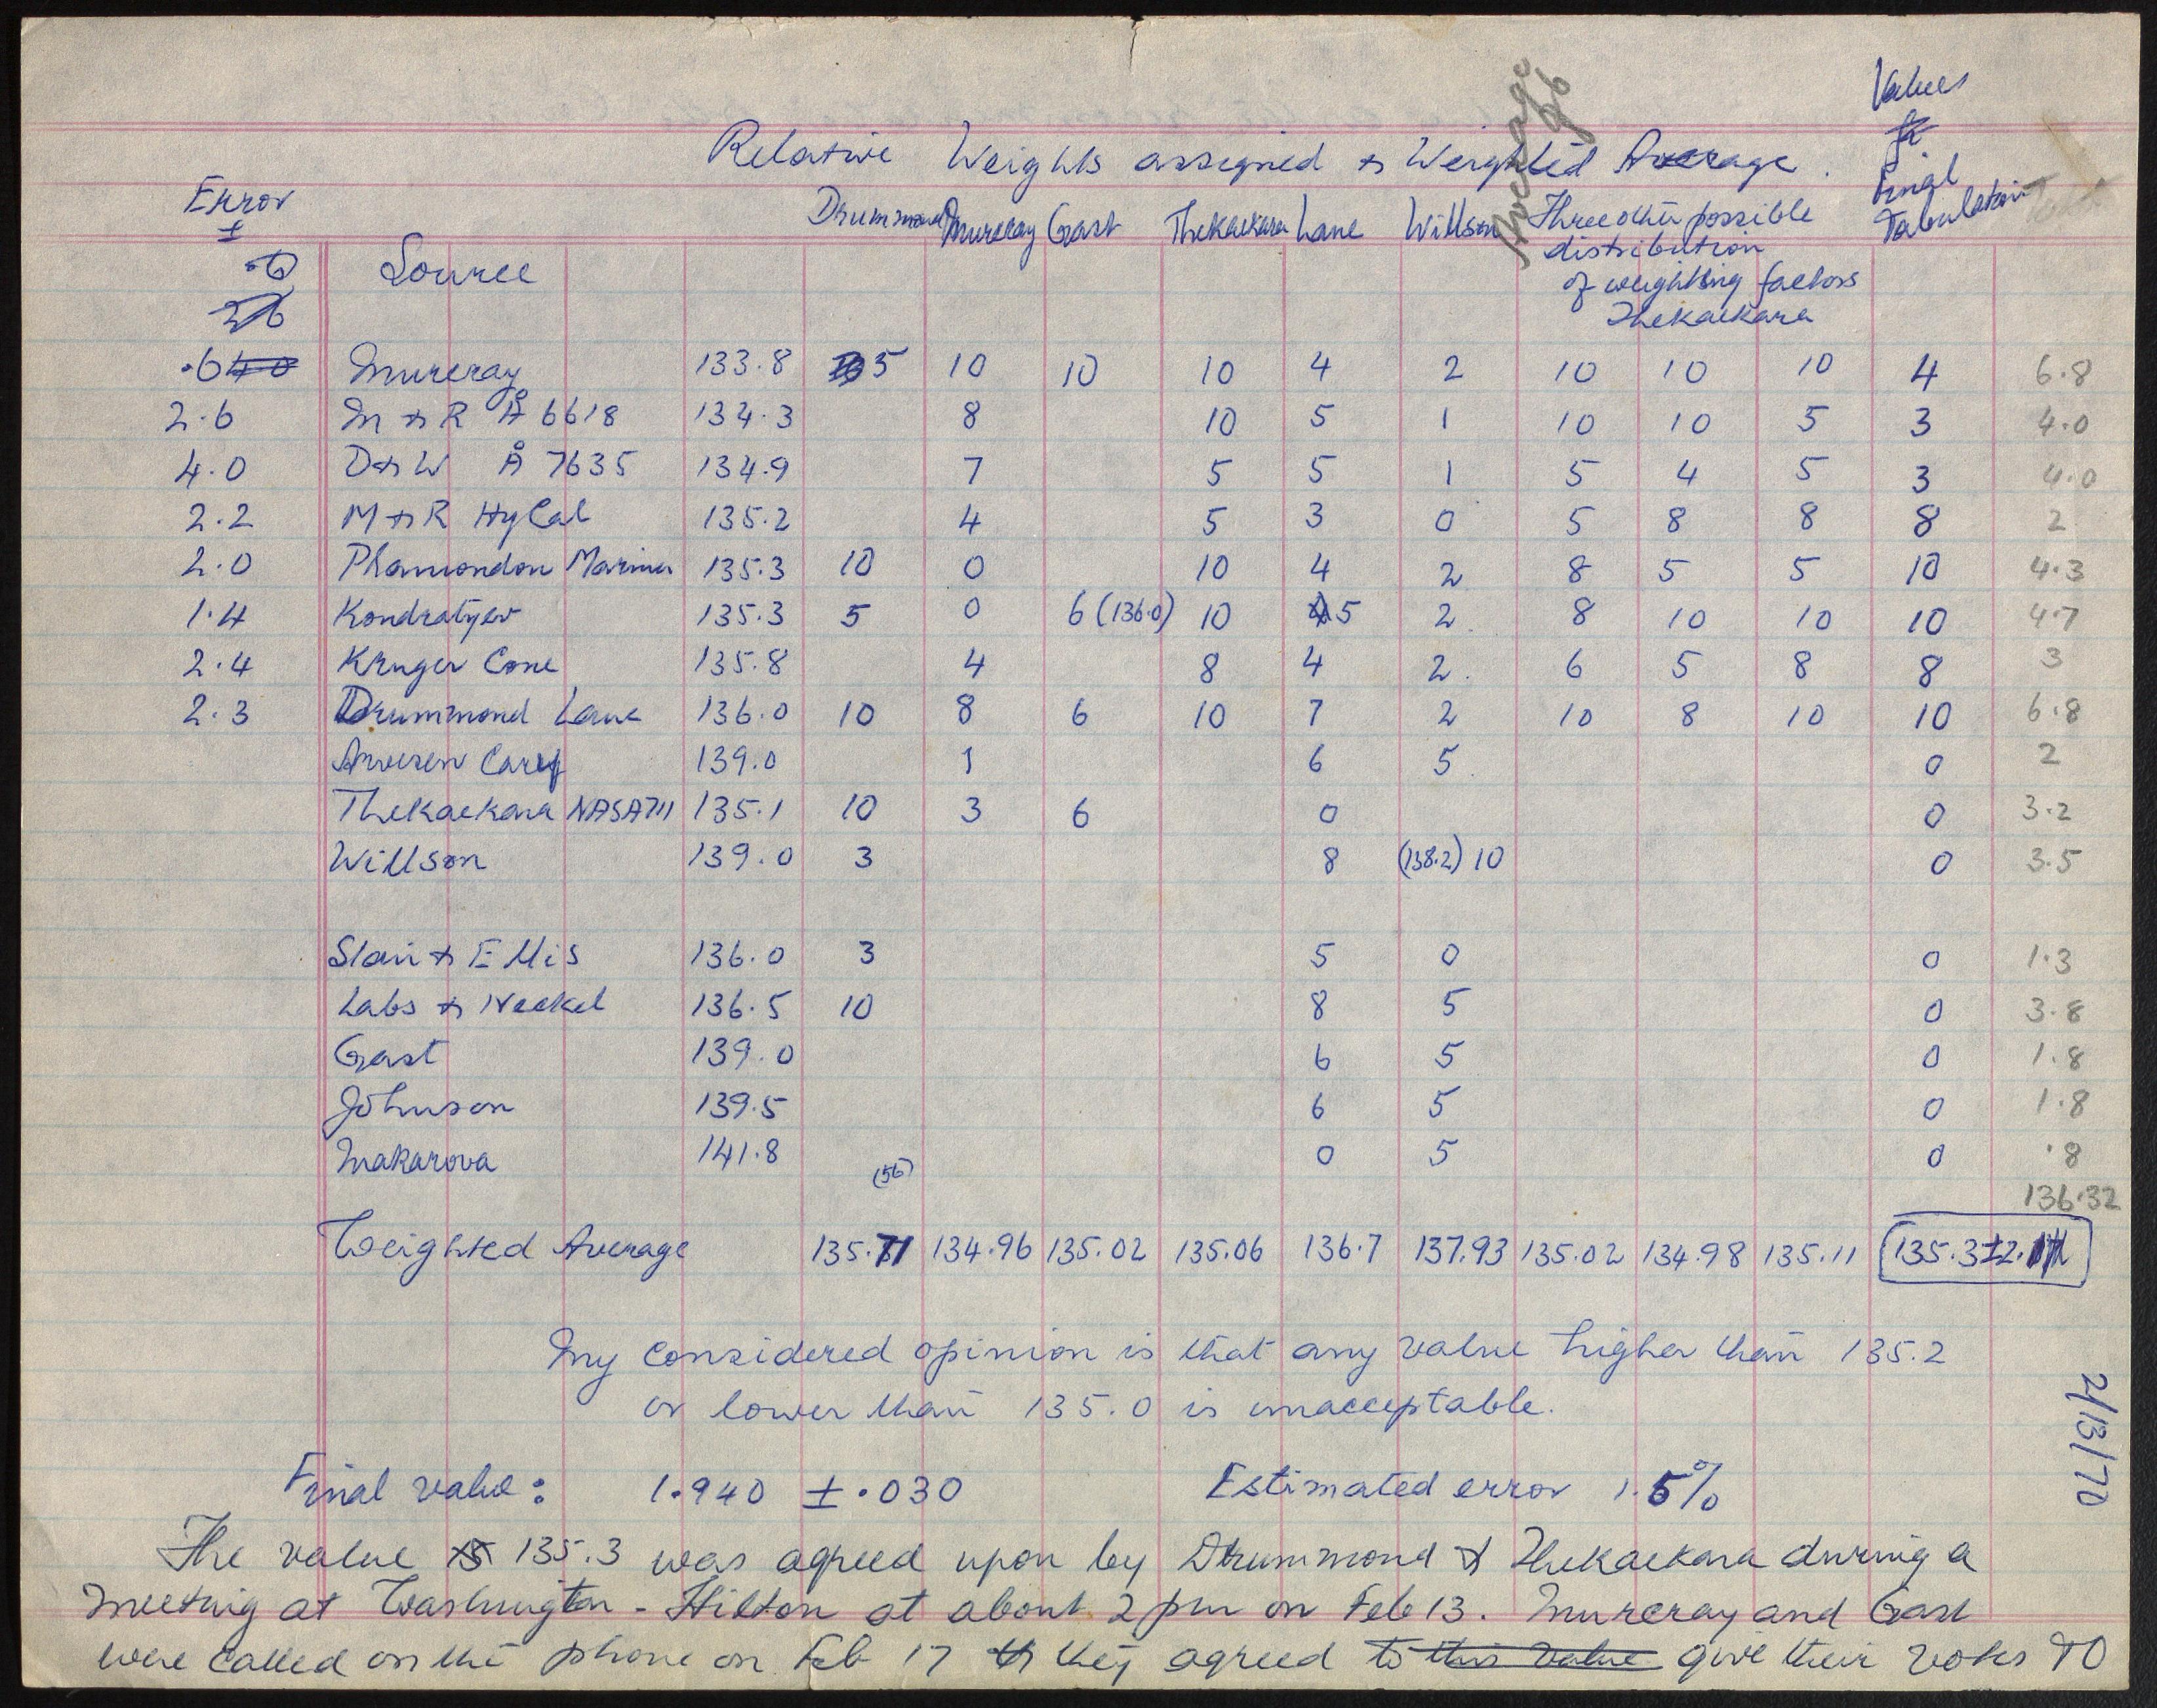 Values
for
Final
Tabulation
Average of 6
Relative Weights assigned & Weighted Average.
Error
±
Drummond Murcray Gast Thekaekara Lane Willson Three other possible
distribution
of weighting factors
Thekaekara
Source
.6 Murcray 133.8 5 10 10 10 4 2 10 10 10 4 6.8
2.6 M & R Å 6618 134.3 8 10 5 1 10 10 5 3 4.0
4.0 D & W Å 7635 134.9 7 5 5 1 5 4 5 3 4.0
2.2 M & R HyCal 135.2 4 5 3 0 5 8 8 8 2
2.0 Plamondon Mariner 135.3 10 0 10 4 2 8 5 5 10 4.3
1.4 Kondratyev 135.3 5 0 6 (136.0) 10 5 2 8 10 10 10 4.7
2.4 Kruger Cone 135.8 4 8 4 2 6 5 8 8 3
2.3 Drummond Lane 136.0 10 8 6 10 7 2 10 8 10 10 6.8
Arvesen Carey 139.0 1 6 5 0 2
Thekaekara NASA711 135.1 10 3 6 0 0 3.2
Willson 139.0 3 8 (138.2) 10 0 3.5
Stair & Ellis 136.0 3 5 0 0 1.3
Labs & Neckel 136.5 10 8 5 0 3.8
Gast 139.0 6 5 0 1.8
Johnson 139.5 6 5 0 1.8
Makarova 141.8 0 5 0 .8
(56)
136.32
Weighted Average 135.71 134.96 135.02 135.06 136.7 137.93 135.02 134.98 135.11 135.3±2.1
My considered opinion is that any value higher than 135.2
or lower than 135.0 is unacceptable.
2/13/70
Final value: 1.940 ± .030 Estimated error 1.5%
The value 135.3 was agreed upon by Drummond & Thekaekara during a
meeting at Washington - Hilton at about 2 pm on Feb 13. Murcray and Gast
were called on the phone on Feb 17 they agreed to this value give their votes to